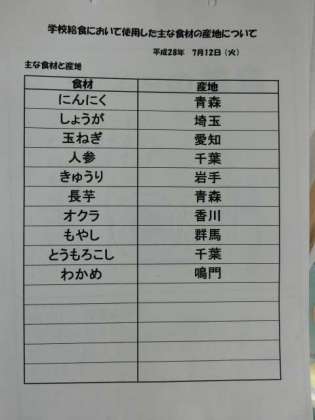 学校給食において使用した主な食材の産地について
平成28年 7月12日(火)
主な食材と産地
食材 産地
にんにく 青森
しょうが 埼玉
玉ねぎ 愛知
人参 千葉
きゅうり 岩手
長芋 青森
オクラ 香川
もやし 群馬
とうもろこし 千葉
わかめ 鳴門